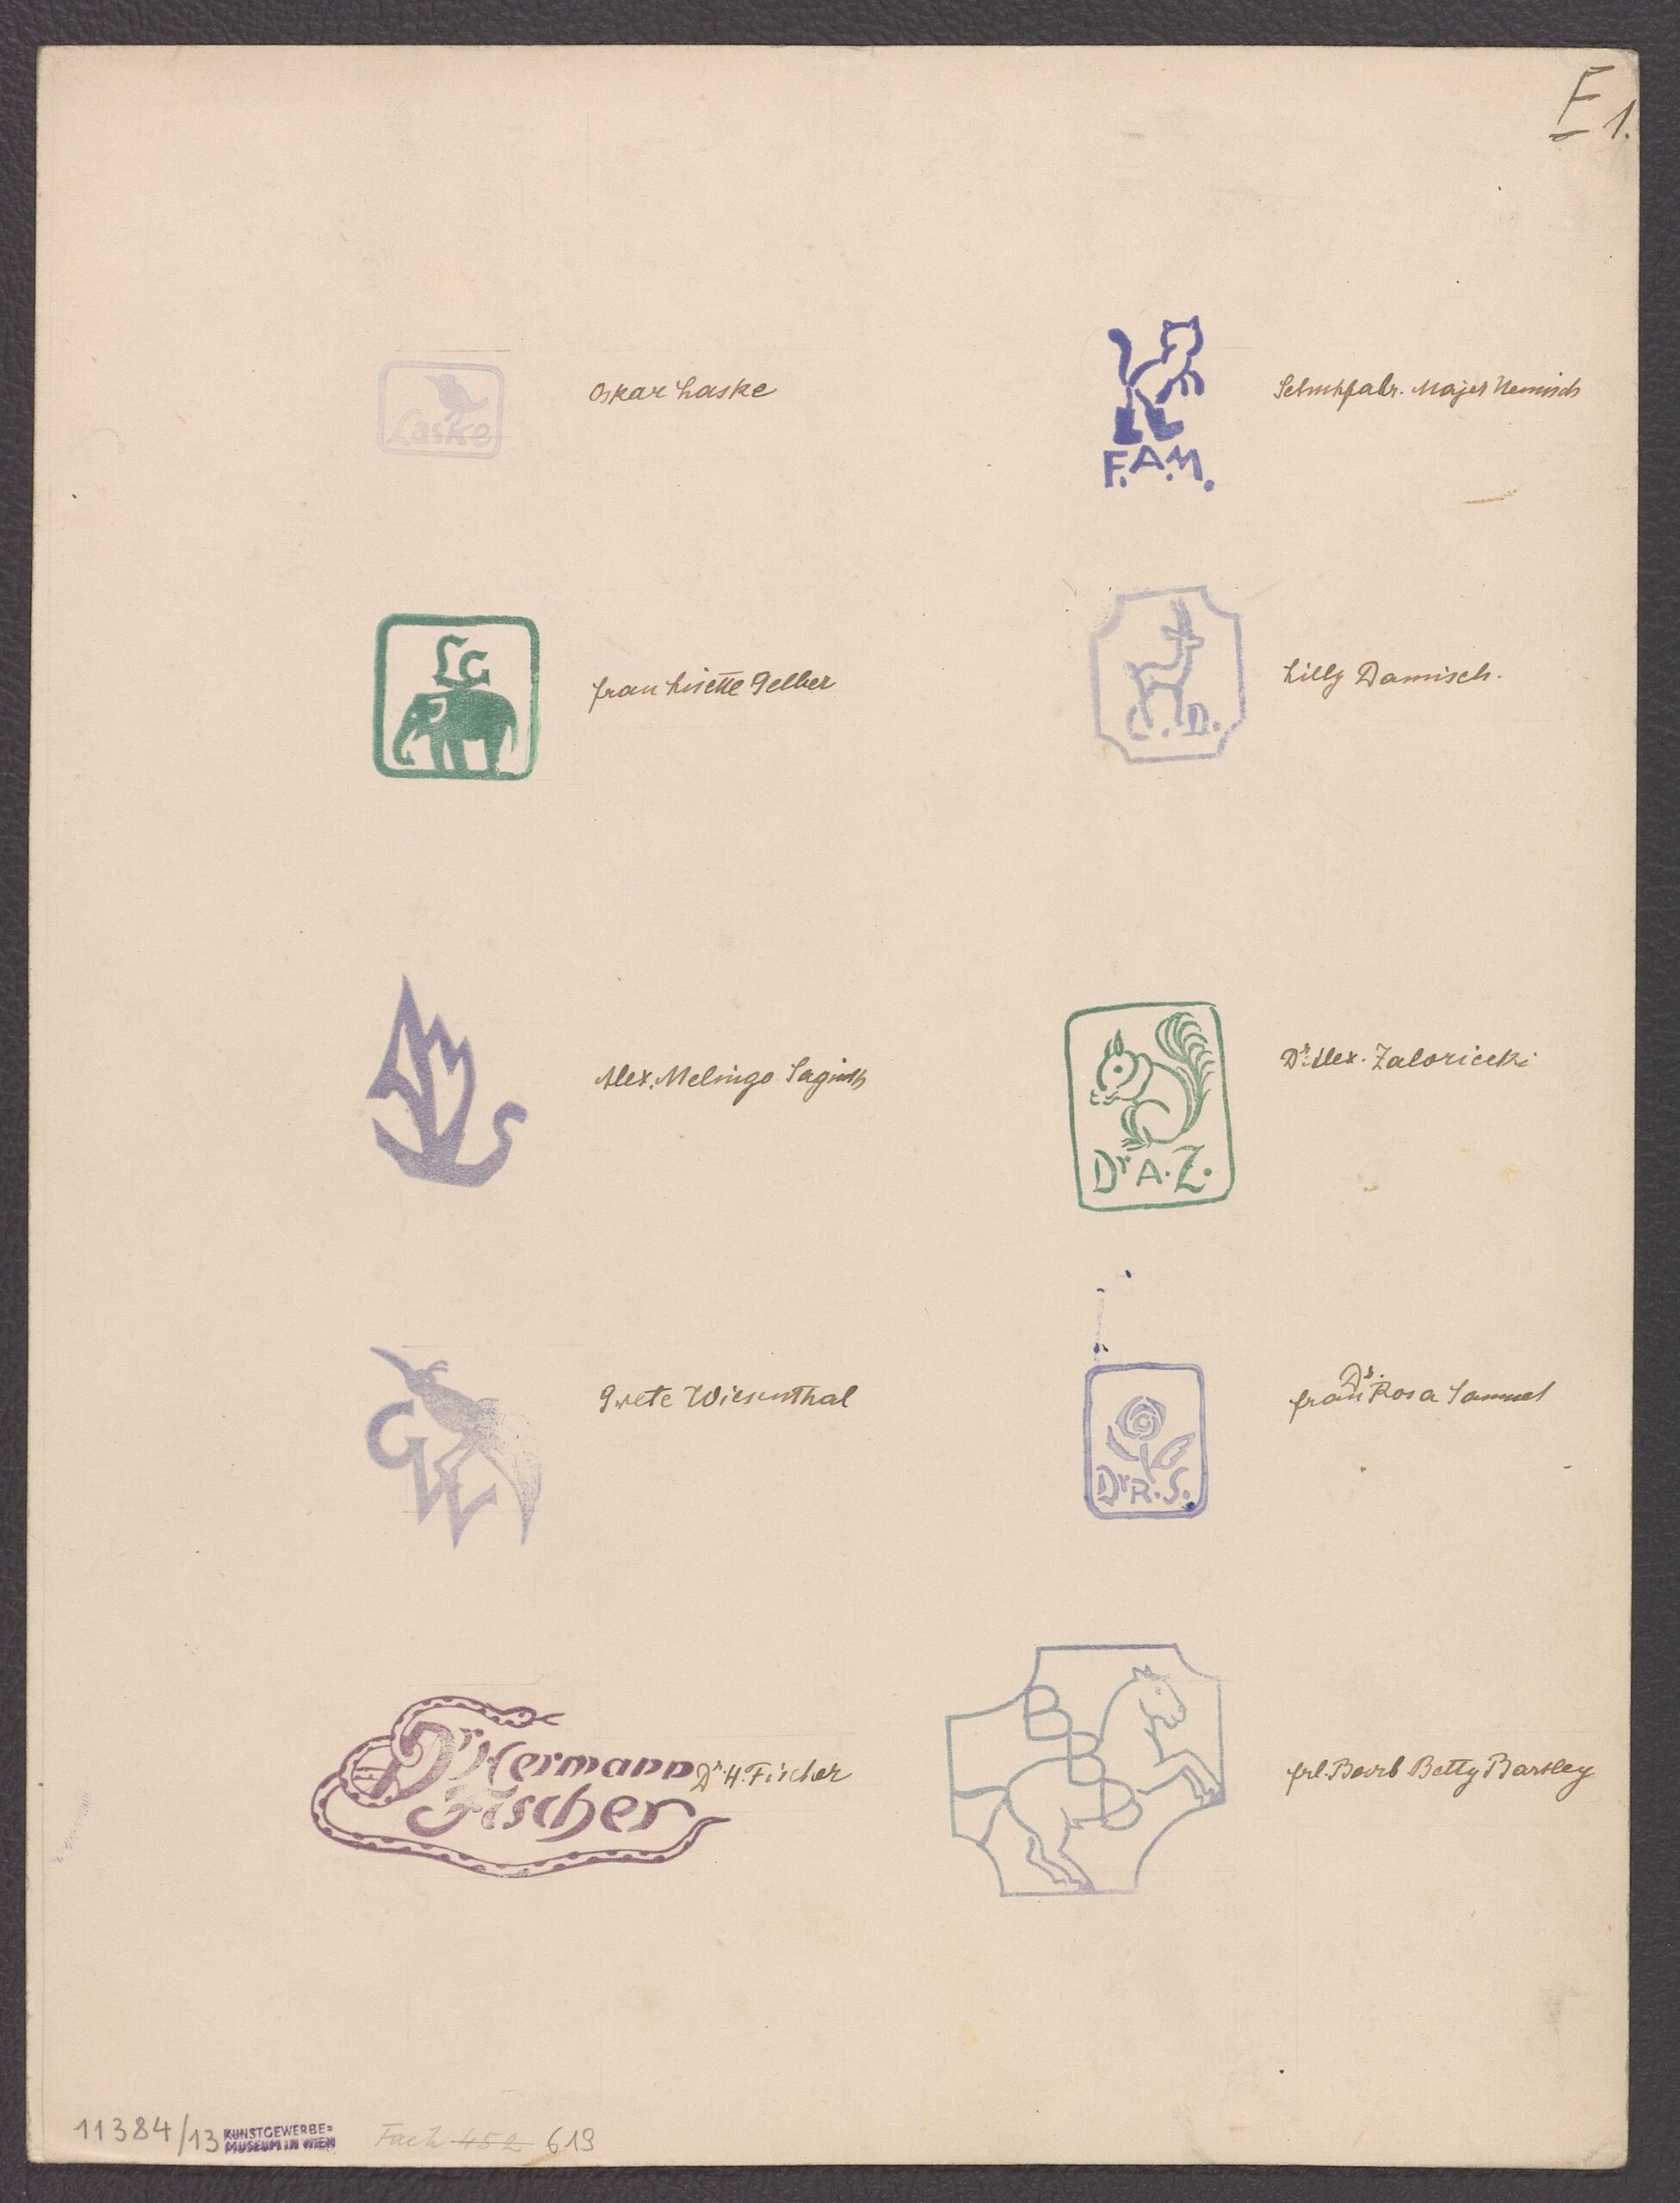 E 1.
Laske
Oskar Laske
F.A.M.
Schuhfabr. Majer
LG
frau Lisette Gelber
L. D.
Lilly Damisch.
Alex. Melingo
Dr A. Z.
Dr. Alex. Zaloziecki
GW
Grete Wiesenthal
Dr R. S.
Dr.
frau Rosa Samuel
Dr Hermann
Fischer
Dr. H. Fischer
B
B
B
frl. Barb Betty Barsley
11384/13 KUNSTGEWERBE=
MUSEUM IN WIEN
Fach 452 619